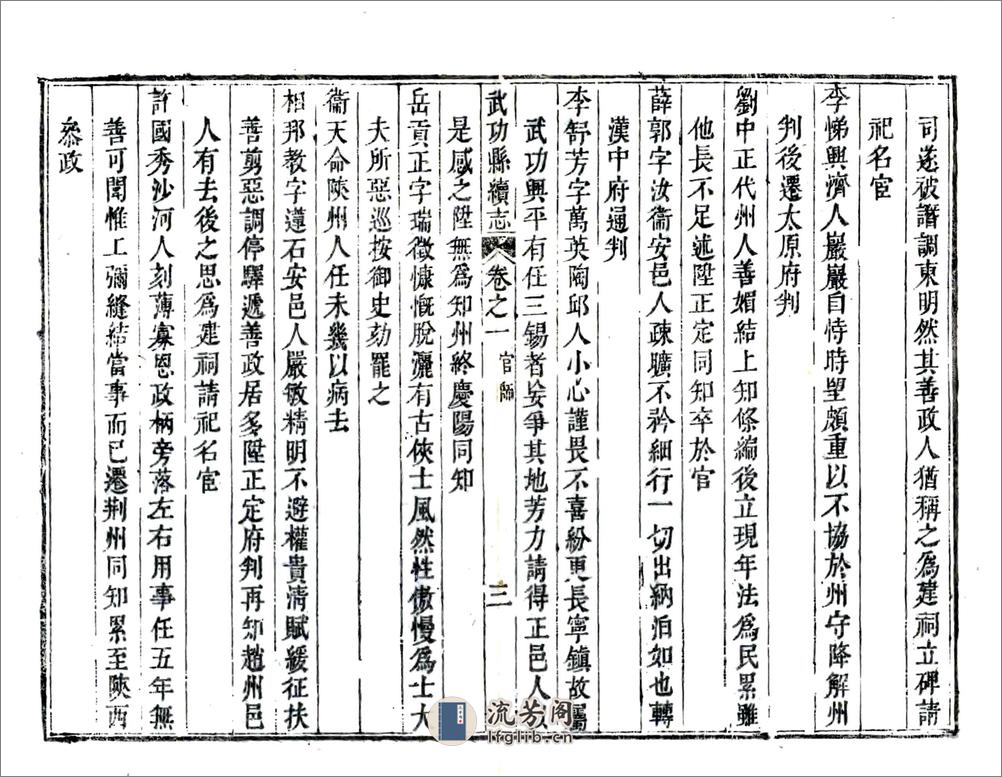 司遂被譖調東明然其善政人猶稱之為建祠立碑請
祀名宦
李悌興濟人巖巖自恃時望頗重以不協於州守降解州
判後遷太原府判
劉中正代州人善媚結上知條編後立現年法為民累雖
他長不足述陞正定同知卒於官
薛郭字汝衞安邑人疎曠不衿細行一切出納泊如也轉
漢中府通判
李舒芳字萬英陶邱人小心謹畏不喜紛更長寧鎮故屬
武功興平有任三錫者妄爭其地芳力請得正邑人以
武功縣續志 卷之一 官師 三
是感之陞無為知州終慶陽同知
岳貢正字瑞徵慷慨脫灑有古俠士風然性傲慢為士大
夫所惡巡按御史劾罷之
衞天命陝州人任未幾以病去
相邦教字達石安邑人嚴敏精明不避權貴清賦緩征扶
善剪惡調停驛遞善政居多陞正定府判再知趙州邑
人有去後之思為建祠請祀名宦
許國秀沙河人刻薄寡恩政柄旁落左右用事任五年無
善可聞惟工彌縫結當事而已遷荆州同知累至陝西
叅政
流芳阁
lfglib.cn